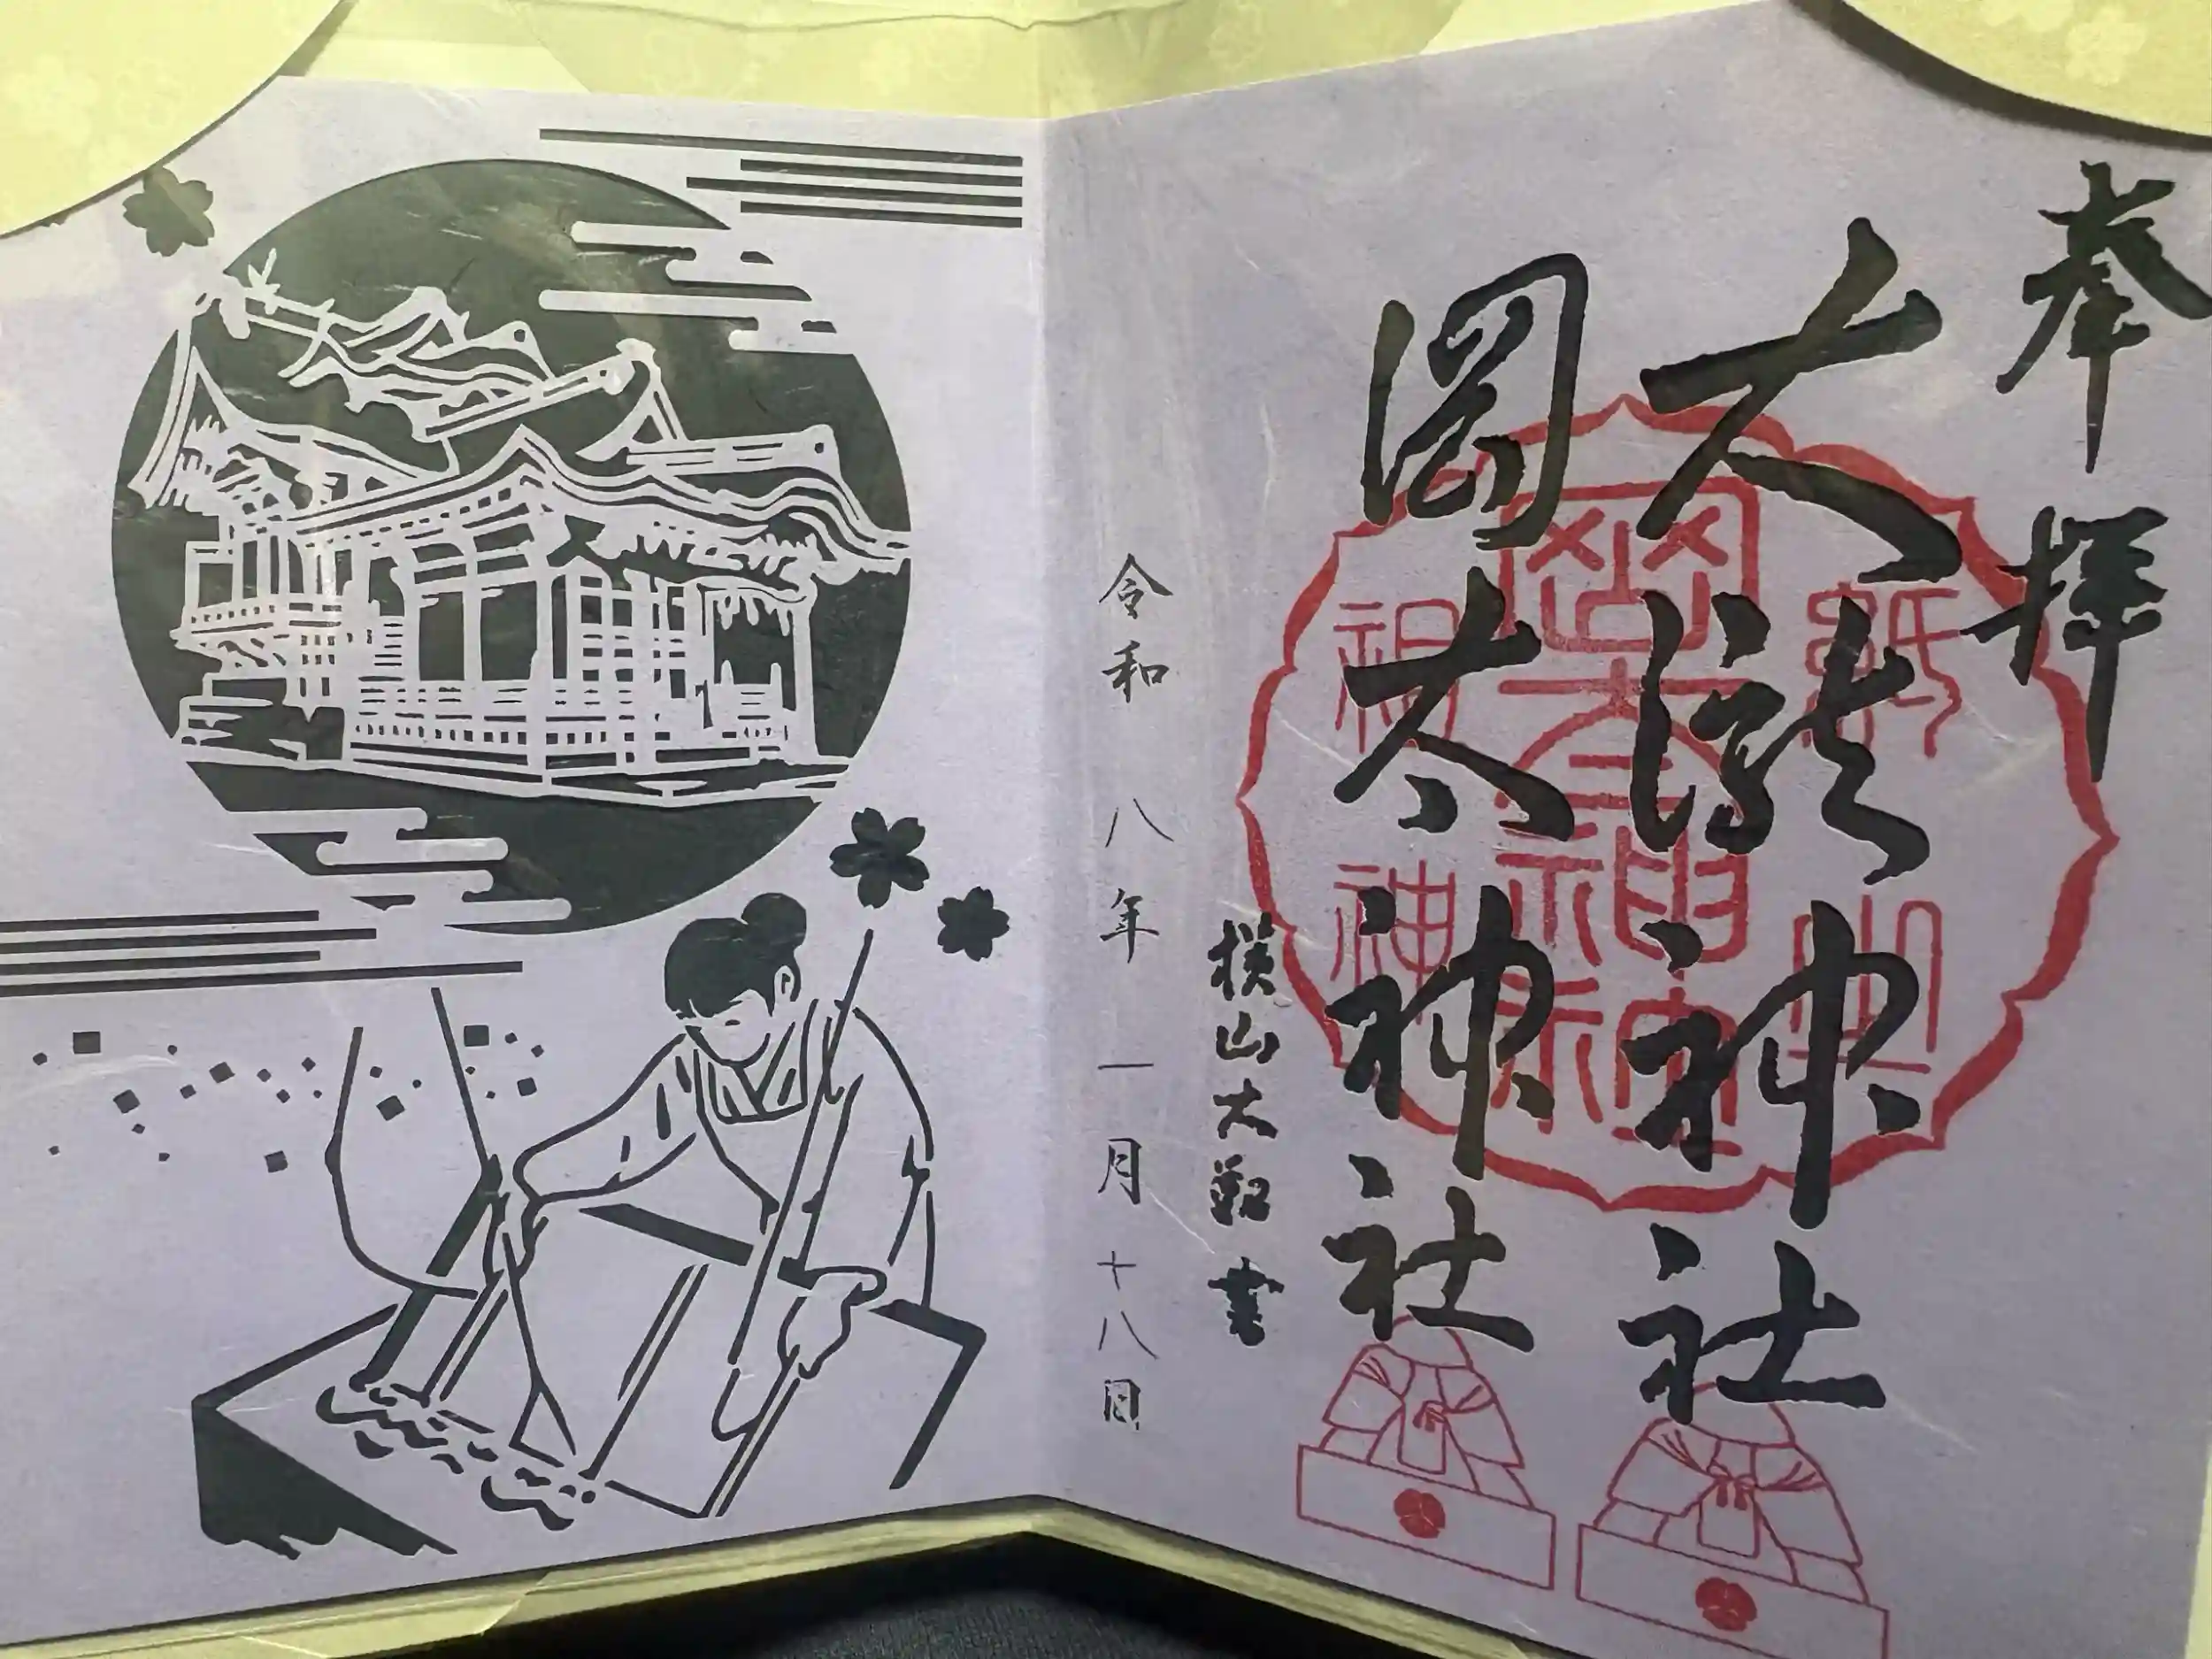 奉拝
大瀧神社
岡太神社
横山大観書
令和八年一月十八日